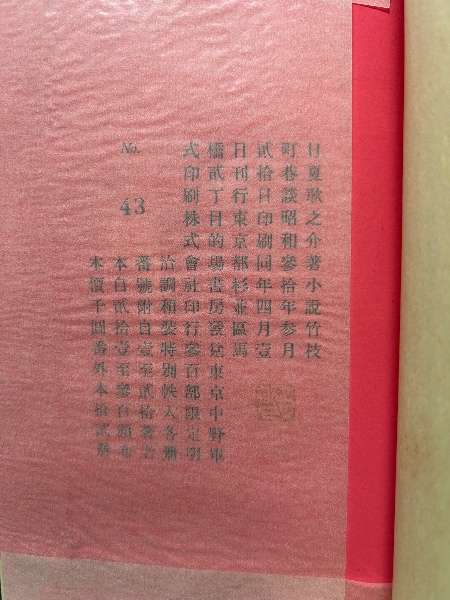 日夏耿之介著小說竹枝
町巷談昭和參拾年参月
貳拾日印刷同年四月壹
日刊行東京都杉並區馬
橋貳丁目的場書房發兌東京中野電
式印刷株式會社印行參百部限定明
治調和裝特別帙入各冊
番號附自壹至貳拾著者
本自貳拾壹至參百頒布
本價千圓番外本拾貳
No. 43